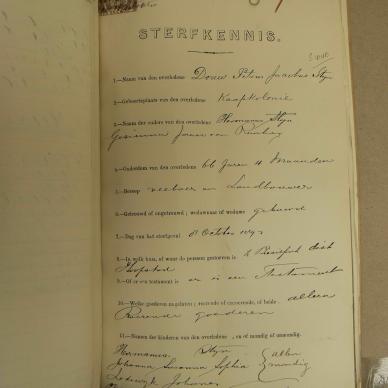 STERFKENNIS.
1.—Naam van den overledene Douw Petrus Jacobus Steyn
2.—Geboorteplaats van den overledene Kaapkolonie
3.—Naam der ouders van den overledene Hermanus Steyn
Gesienna Johanna van
4.—Ouderdom van den overledene 66 Jaren 4 Maanden
5.—Beroep veeboer en Landbouwer
6.—Getrouwd of ongetrouwd; weduwnaar of weduwe gehuwd
7.—Dag van het sterfgeval 8 October
8.—In welk huis, of waar de persoon gestorven is dist
Hoopstad
9.—Of er een testament is er is een Testament
10.—Welke goederen nagelaten; roerende of onroerende, of beide alleen
Roerende goederen
11.—Namen der kinderen van den overledene, en of mondig of onmondig.
Hermanus Steyn
Johanna Susanna Sophia allen
Lodewyk Johannes mondig